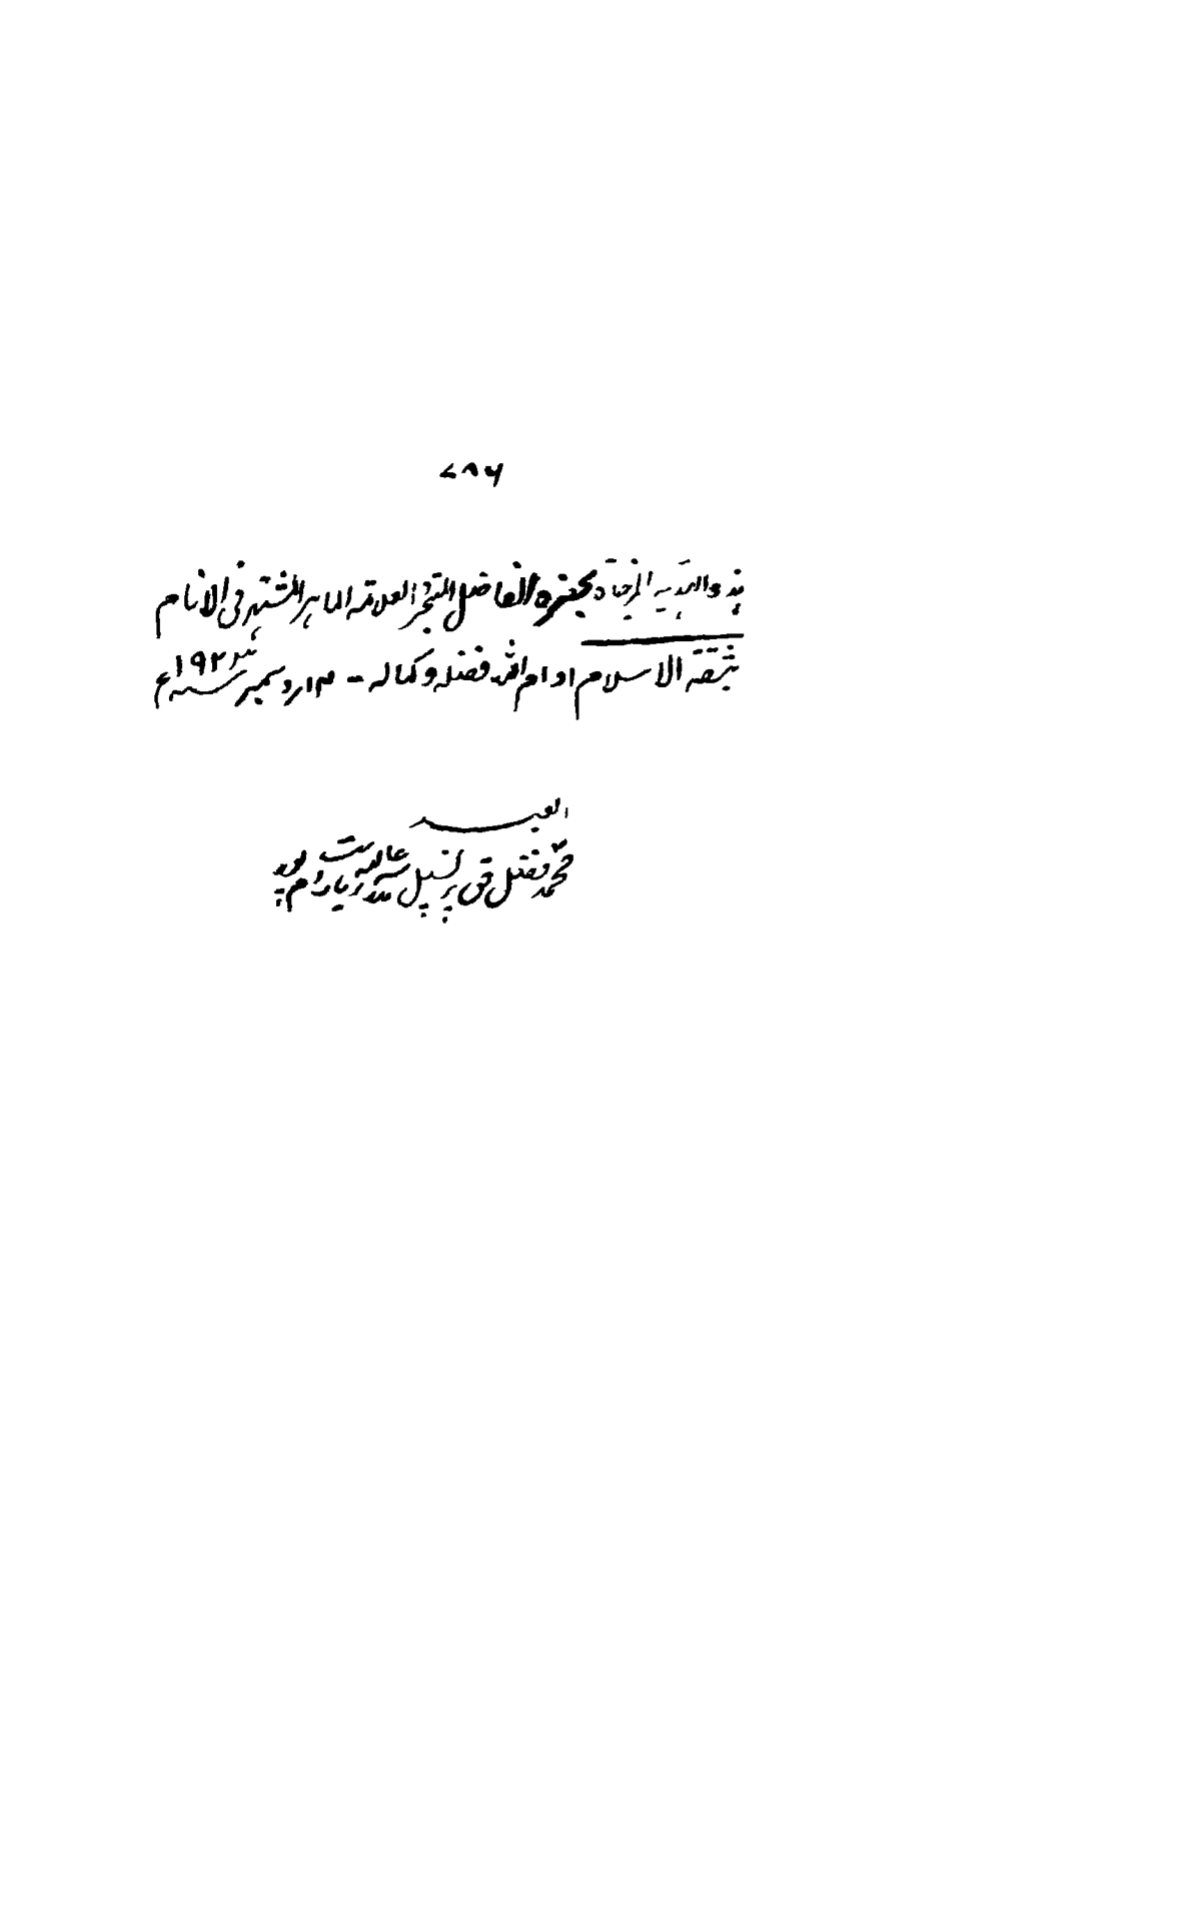 ۷۸۶
هذه الهدية المزجاة بحضرة الفاضل المتبحر العلامة الماهر المشتهر في الانام
بثقة الاسلام ادام الله فضله وكماله - ۱۴؍ دسمبر سنه ۱۹۲ء
العبد
محمد فضل حق پرنسپل مدرسه عاليه رياست رام پور